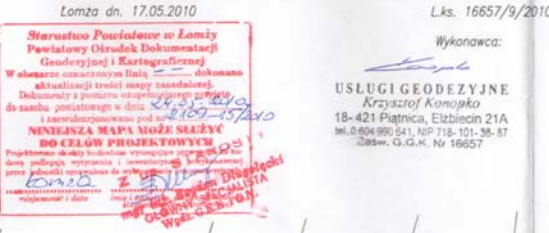 Łomża dn. 17.05.2010
Starostwo Powiatowe w Łomży
Powiatowy Ośrodek Dokumentacji
Geodezyjnej i Kartograficznej
W obszarze oznaczonym linią dokonano
aktualizacji treści mapy zasadniczej.
Dokumenty z pomiaru uzupełniającego przyjęto
do zasobu powiatowego w dniu 24.05.2010
i zaewidencjonowano pod nr 2109-15/2010
NINIEJSZA MAPA MOŻE SŁUŻYĆ
DO CELÓW PROJEKTOWYCH
Projektowane obiekty budowlane wymagające
podlegają wytyczeniu i inwentaryzacji
przez jednostki uprawnione do
Łomża
miejscowość i data
Z up. STAROSTY
GŁÓWNY SPECJALISTA
L.ks. 16657/9/2010
Wykonawca:
USŁUGI GEODEZYJNE
Krzysztof Konopko
18-421 Piątnica, Elżbiecin 21A
tel. 0 604 990 641, NIP 718-101-36-87
Zaśw. G.G.K. Nr 16657